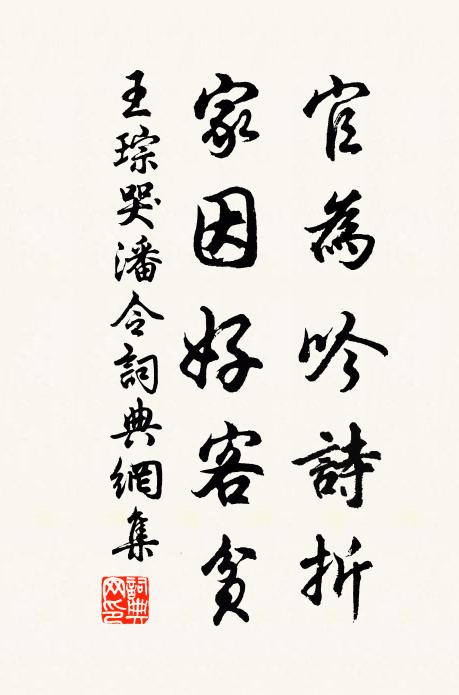 官為吟詩折
家因好客貧
王琮哭潘令詞典網集
詞典網印